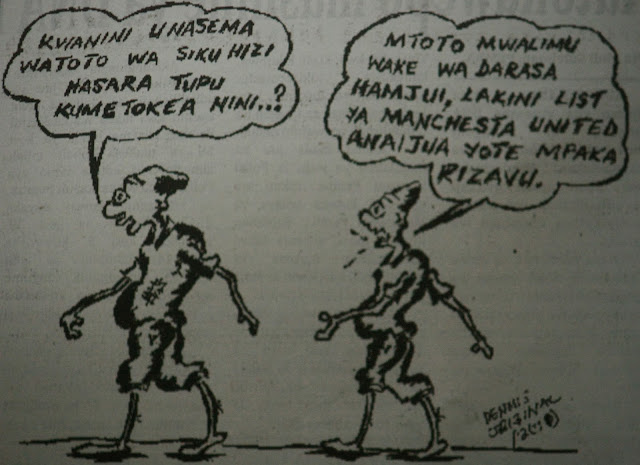 KWANINI UNASEMA
WATOTO WA SIKU HIZI
HASARA TUPU
KUMETOKEA NINI..?
MTOTO MWALIMU
WAKE WA DARASA
HAMJUI, LAKINI LIST
YA MANCHESTA UNITED
ANAIJUA YOTE MPAKA
RIZAVU.
DENNIS